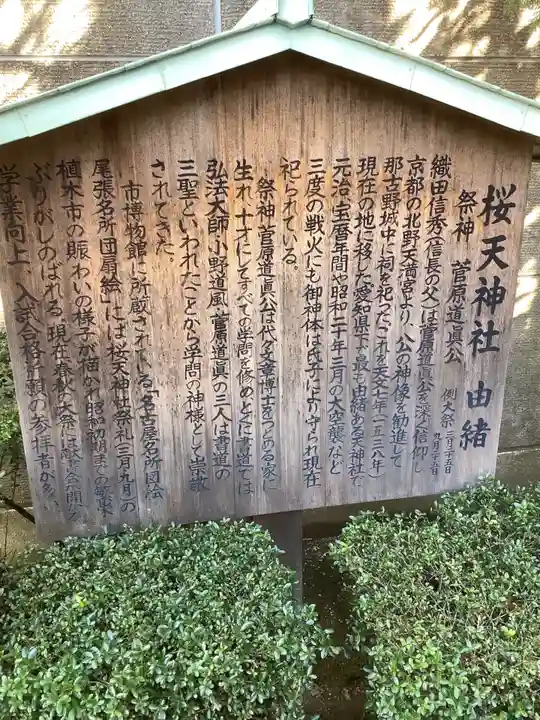 桜天神社 由緒
祭神 菅原道眞公
例大祭 二月二十五日
九月二十五日
織田信秀(信長の父)は菅原道眞公を深く信仰し
京都の北野天満宮より、公の神像を勧進して
那古野城中に祠を祀ったこれを天文七年(一五三八年)
現在の地に移し愛知県下、最も由緒ある天神社で
元治、宝暦年間、昭和二十年三月の大空襲など
三度の戦火にも御神体は氏子により守られ現在
祀られている。
祭神、菅原道眞公は代々文章博士をつとめる家に
生れ、十才にしてすべての学問を修めとくに書道では
弘法大師、小野道風、菅原道眞の三人は書道の
三聖といわれたことから学問の神様として崇敬
されてきた。
市博物館に所蔵されている「名古屋名所団絵
尾張名所団扇絵」には桜天神社祭礼(三月九月)の
植木市の賑わいの様子が描かれ昭和初期までの繁栄
ぶりがしのばれる、現在春秋の大祭は
学業向上、入試合格祈願の参拝者が多い